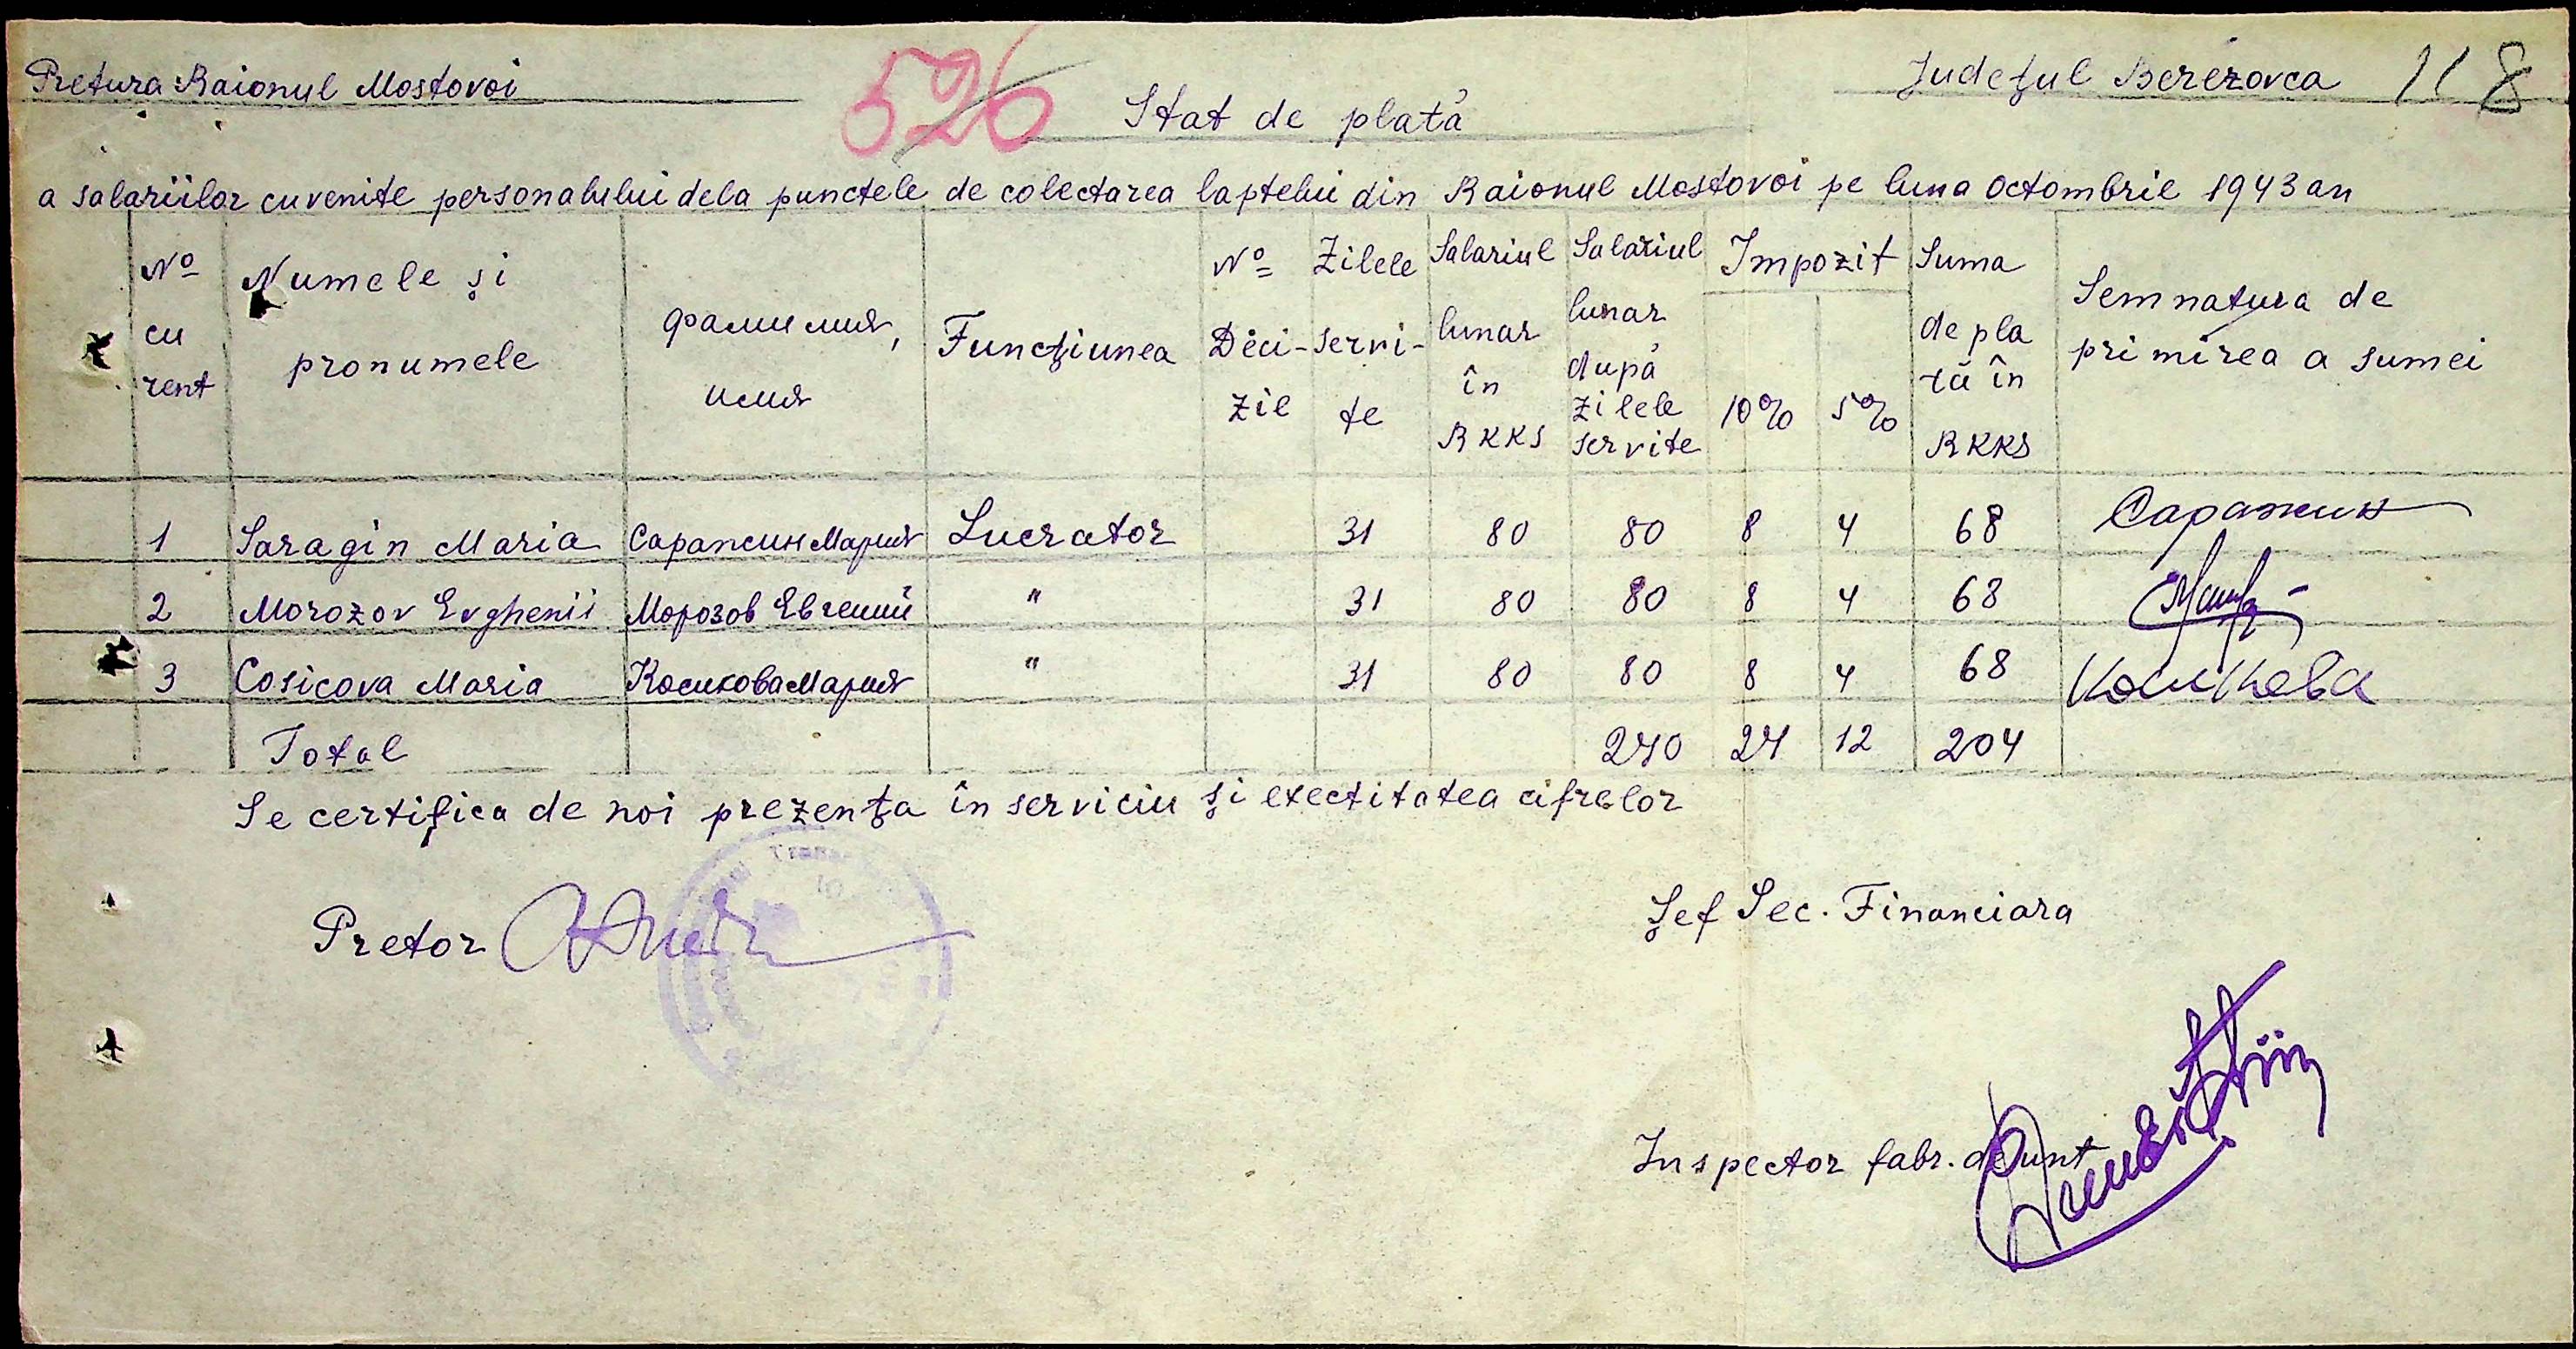 Pretura Raionul Mostovoi
526
Judeţul Berezovca 118
Stat de plată
a salariilor cuvenite personalului dela punctele de colectarea laptelui din Raionul Mostovoi pe luna Octombrie 1943 an
№ cu rent | Numele şi pronumele | Фамилия, имия | Funcţiunea | № Deci- zie | Zilele servi- te | Salariul lunar în RKKS | Salariul lunar după zilele servite | Impozit 10% | 5% | Suma de pla tă în RKKS | Semnatura de primirea a sumei
1 Saragin Maria Саражин Мария Lucrator 31 80 80 8 4 68 Саражин
2 Morozov Evghenii Морозов Евгений " 31 80 80 8 4 68
3 Cosicova Maria Косикова Мария " 31 80 80 8 4 68 Косикова
Total 240 24 12 204
Se certifica de noi prezenţa în serviciu şi exectitatea cifrelor
Pretor
Şef Sec. Financiara
Inspector fabr. de unt